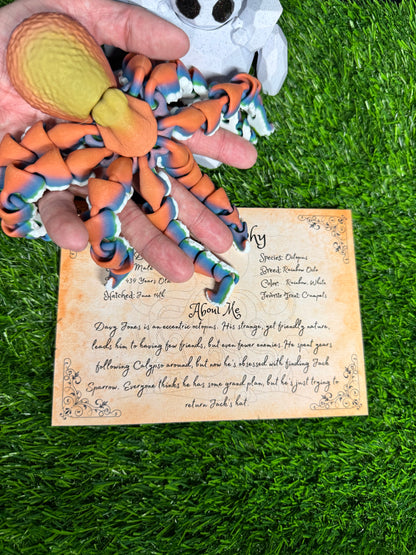 hy
Species: Octopus
Male
Breed: Rainbow Octo
939 Years Old
Color: Rainbow, White
Hatched: June 15th
Favorite Treat: Crumpets
About Me
Davy Jones is an eccentric octopus. His strange, yet friendly nature,
leads him to having few friends, but even fewer enemies. He spent years
following Calypso around, but now he's obsessed with finding Jack
Sparrow. Everyone thinks he has some grand plan, but he's just trying to
return Jack's hat.